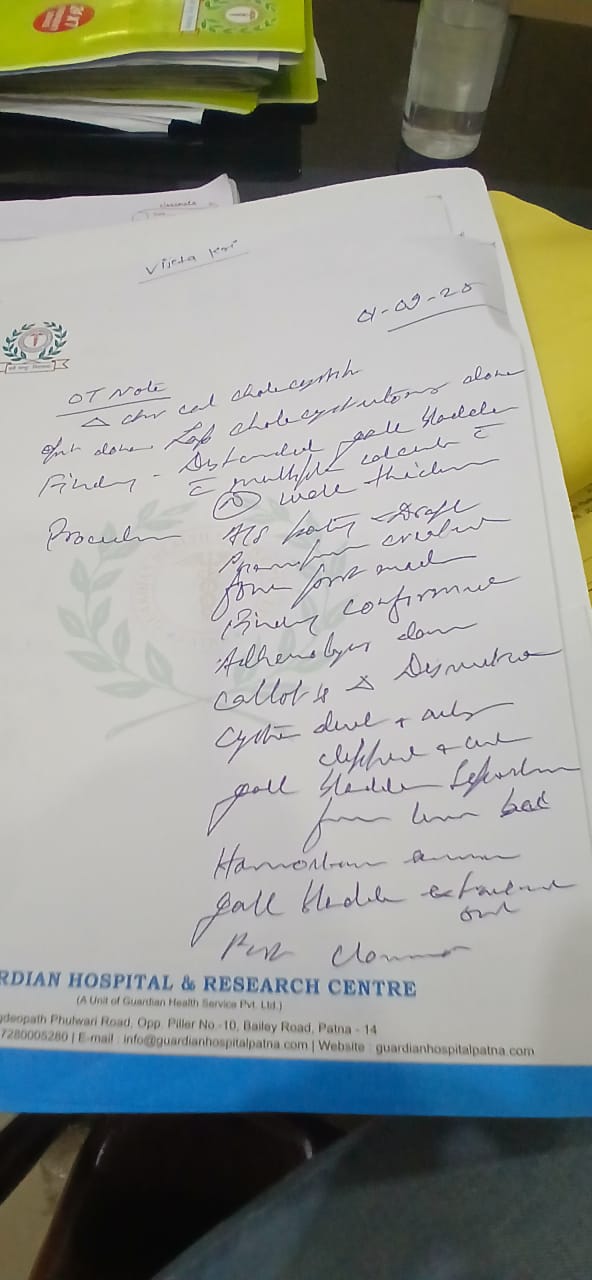 OT Note
△ chr cal cholecystitis
done Lap cholecystectomy done
Finding - Distended gall bladder
c̄ multiple calculi c̄
(N) wall thickness
Procedure
Pneumoperitoneum created
four port made
Finding confirmed
Adhenolysis done
Callot's △ Dissection
Cystic duct + artery
clipped + cut
gall bladder separation
from liver bed
Haemostasis
gall bladder extracted
out
Port closure
RDIAN HOSPITAL & RESEARCH CENTRE
(A Unit of Guardian Health Service Pvt. Ltd.)
gdeopath Phulwari Road, Opp. Piller No.-10, Bailey Road, Patna - 14
7280005280 | E-mail : info@guardianhospitalpatna.com | Website : guardianhospitalpatna.com